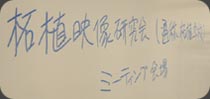 柘植映像研究会
ミーティング会場